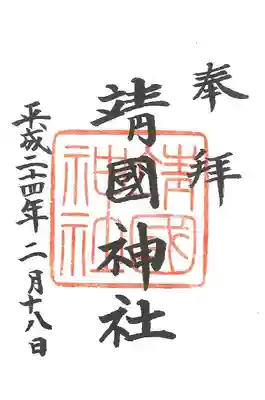 奉拝
靖國神社
平成二十四年二月十八日
靖國
神社